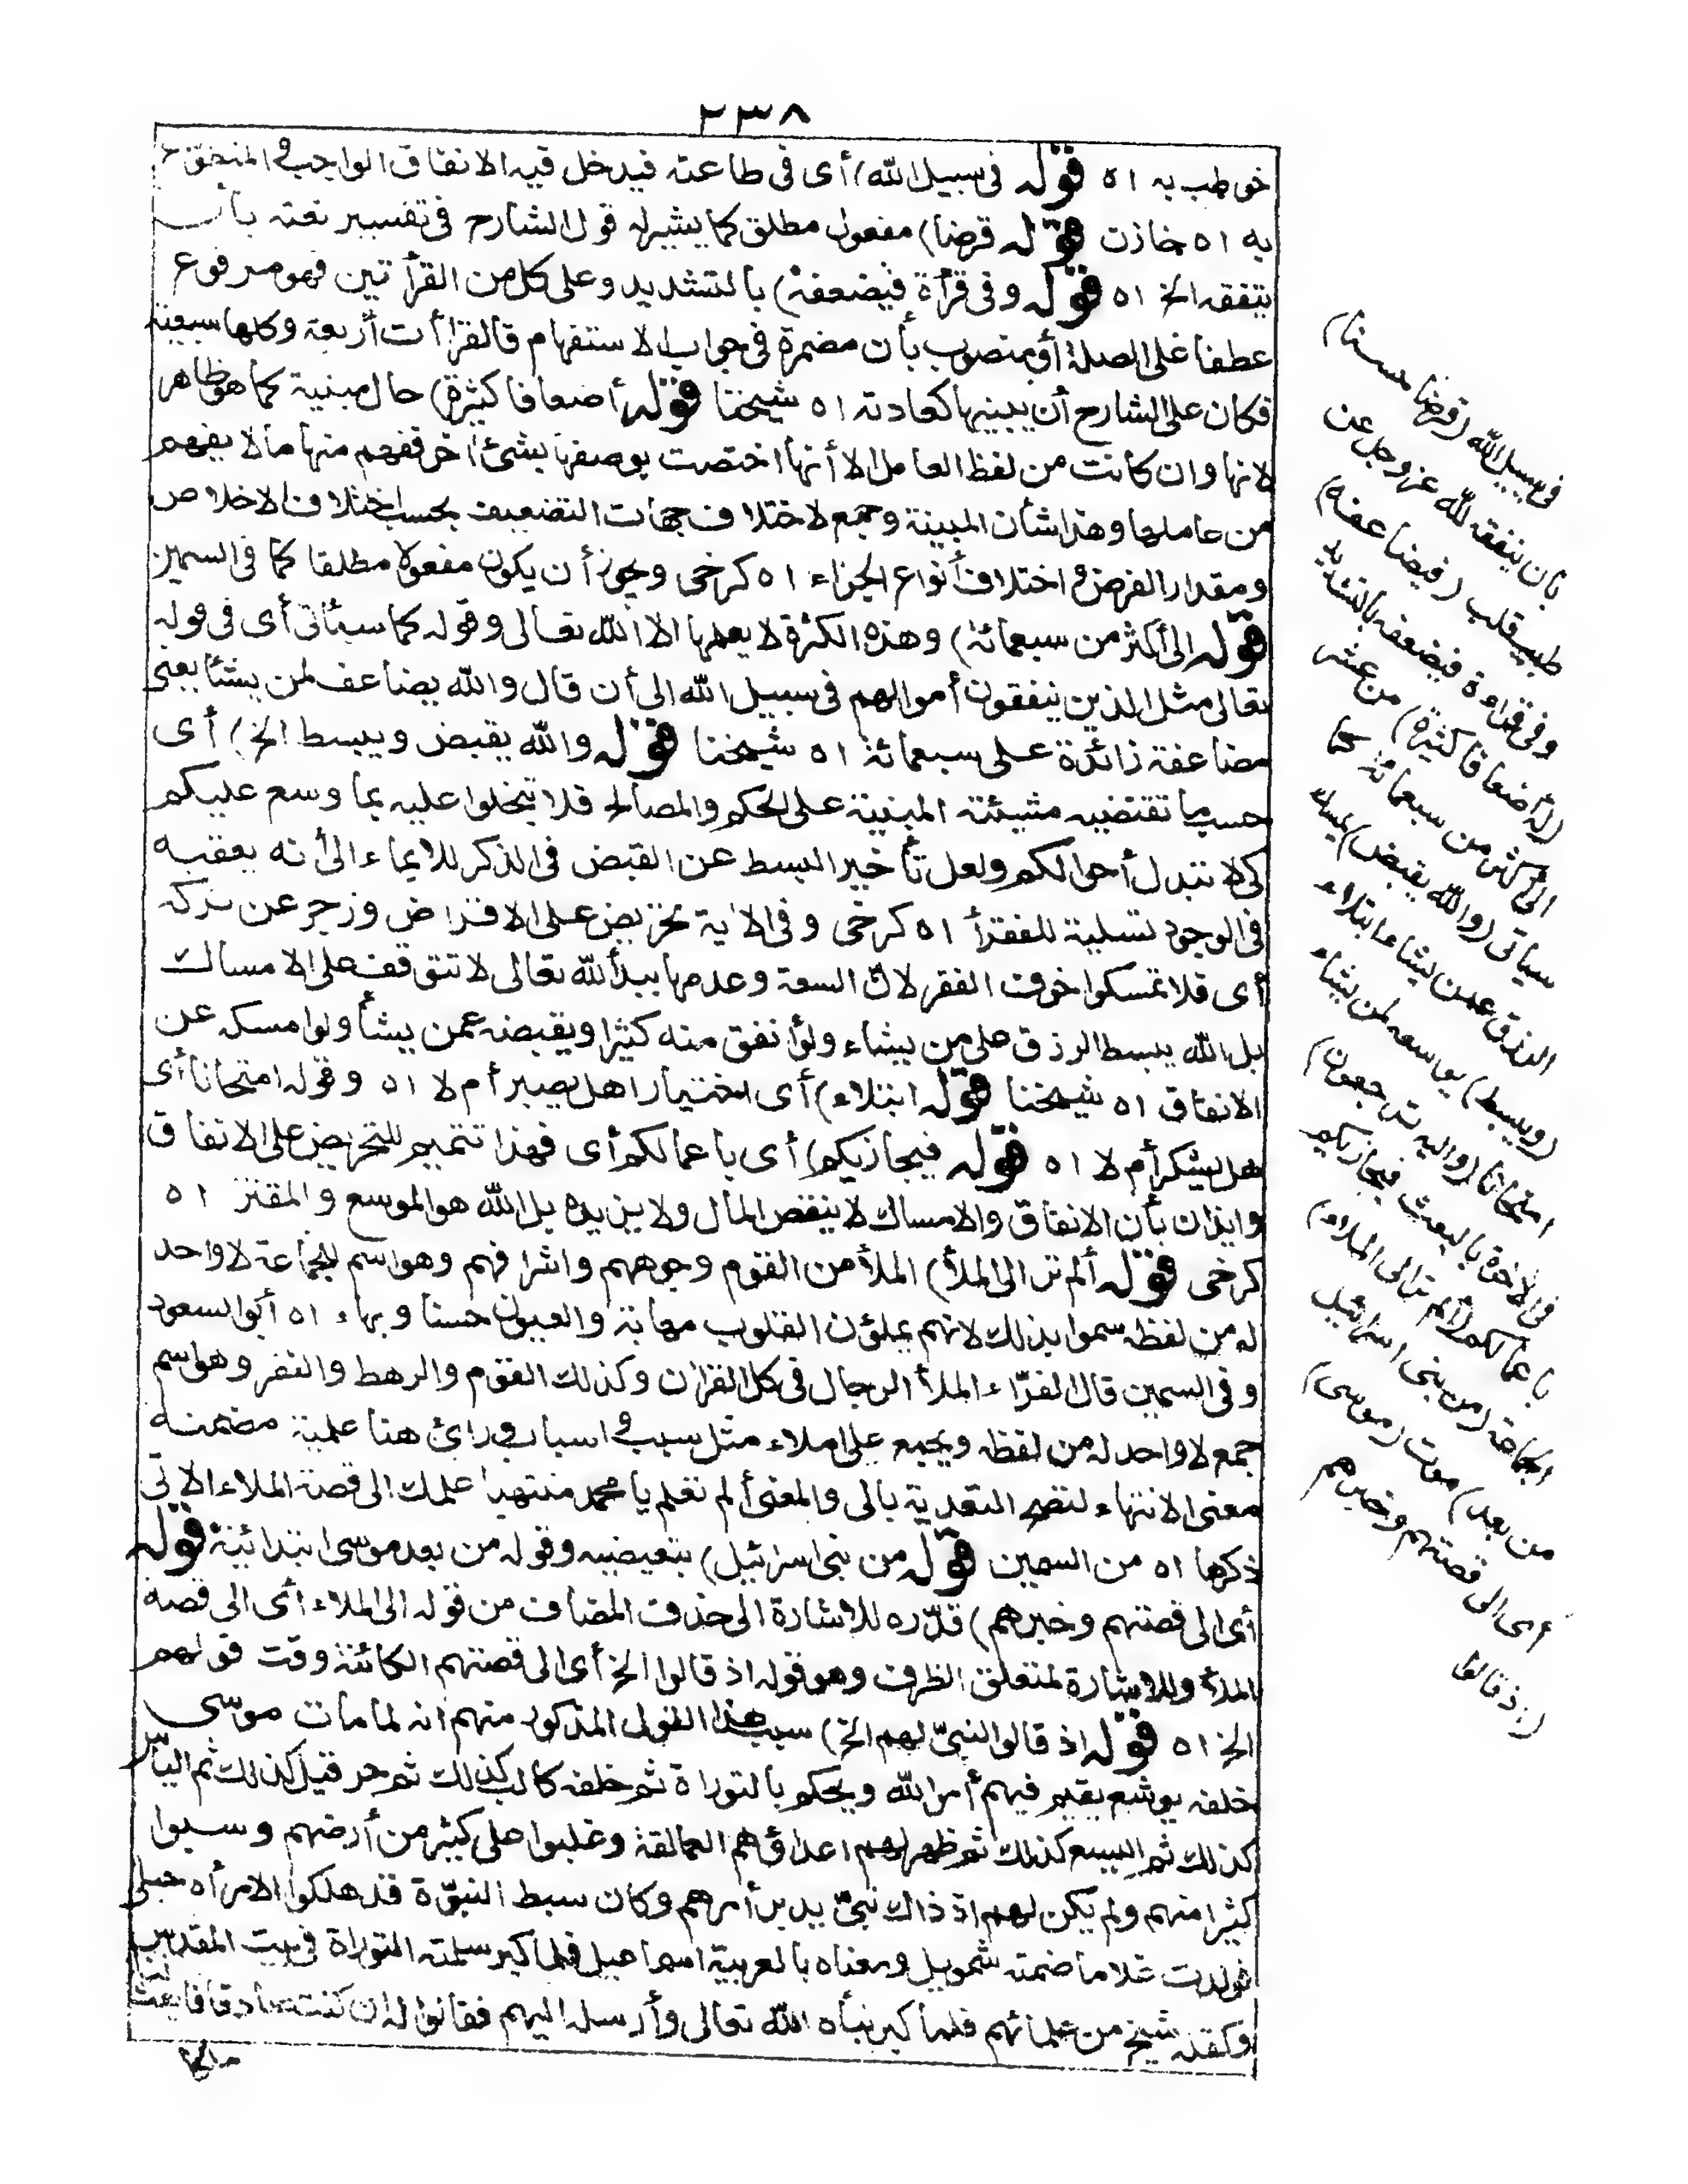 ٢٣٨
خوطب به اه قوله فى سبيل الله) أى فى طاعته فيدخل فيه الانفاق الواجب و المتطوع
به اه خازن قوله قرضا) مفعول مطلق كما يشير له قول الشارح فى تفسير نعته بأن
ينفقه الخ اه قوله وفى قرأة فيضعفه) بالتشديد وعلى كل من القرأتين فهو مرفوع
عطفا على الصلة أو منصوب بأن مضمرة فى جواب الاستفهام فالقرأت أربعة وكلها سبعية
فكان على الشارح أن يبينها كعادته اه شيخنا قوله أضعافا كثيرة) حال مبنية كما هو ظاهر
لانها وان كانت من لفظ العامل الا أنها اختصت بوصفها بشئ اخر ففهم منها مالا يفهم
من عاملها وهذا شأن المبينة وجمع لاختلاف جهات التضعيف بحسب اختلاف الاخلاص
ومقدار القرض و اختلاف أنواع الجزاء اه كرخى ويجوز أن يكون مفعولا مطلقا كما فى السمين
قوله الى أكثر من سبعمائة) وهذه الكثرة لا يعلمها الا الله تعالى وقوله كما سيأتى أى فى قوله
تعالى مثل الذين ينفقون أموالهم فى سبيل الله الى أن قال والله يضاعف لمن يشئا يعنى
مضاعفة زائدة على سبعمائة اه شيخنا قوله والله يقبض ويبسط الخ) أى
حسب ما تقتضيه مشيئته المبنية على الحكم والمصالح فلا تبخلوا عليه بما وسع عليكم
كى لا تتبدل أحوالكم ولعل تأخير البسط عن القبض فى الذكر للايماء الى أنه يعقبه
فى الوجود تسلية للفقرأ اه كرخى وفى الاية تحريض على الاقراض وزجر عن تركه
أى فلا تمسكوا خوف الفقر لان السعة وعدمها بيد الله تعالى لا تتوقف على الامساك
بل الله يبسط الرزق على من يشاء ولو أنفق منه كثيرا ويقبضه عمن يشأ ولو امسكه عن
الانفاق اه شيخنا قوله ابتلاء) أى اختيارا هل يصبر أم لا اه وقوله امتحانا أى
هل يشكر أم لا اه قوله فيجازيكم) أى باعمالكم أى فهذا تتميم للتحريض على الانفاق
وايذان بأن الانفاق والامساك لا ينقص المال ولا يزيده بل الله هو الموسع والمقتر اه
كرخى قوله ألم تر الى الملأ) الملأ من القوم وجوههم واشرافهم وهو اسم للجماعة لا واحد
له من لفظه سموا بذلك لانهم يملؤن القلوب مهابة والعيون حسنا وبهاء اه أبو السعود
وفى السمين قال الفرّاء الملأ الرجال فى كل القران وكذلك القوم والرهط والنفر وهو اسم
جمع لا واحد له من لفظه ويجمع على املاء مثل سبب و اسباب و رائ هنا علمية مضمنة
معنى الانتهاء لتصح التعدية بالى والمعنى ألم تعلم يا محمد منتهيا علمك الى قصة الملاء الاتى
ذكرها اه من السمين قوله من بنى اسرائيل) بتعيضيه وقوله من بعد موسى ابتدائية قوله
أى الى قصتهم وخبرهم) قدّره للاشارة الى حذف المضاف من قوله الى الملاء أى الى قصة
الملأ وللاشارة لمتعلق الظرف وهو قوله اذ قالوا الخ أى الى قصتهم الكائنة وقت قولهم
الخ اه قوله اذ قالوا لنبىّ لهم الخ) سبب هذا القول المذكور منهم انه لما مات موسى
خلفه يوشع يقيم فيهم أمر الله ويحكم بالتوراة ثم خلفه كالب كذلك ثم حزقيل كذلك ثم الياس
كذلك ثم اليسع كذلك ثم ظهر لهم اعداؤهم العمالقة وغلبوا على كثير من أرضهم وسبوا
كثيرا منهم ولم يكن لهم اذ ذاك نبىّ يدبر أمرهم وكان سبط النبوّة قد هلكوا الا مرأه حبلى
فولدت غلاما ضمته شمويل ومعناه بالعربية اسماعيل فلما كبر سلمته التوراة فى بيت المقدس
وكفله شيخ من علمائهم فلما كبر نبأه الله تعالى وأرسله اليهم فقالوا له ان كنت صادقا فابعث لنا
ملكا
فى سبيل الله (قرضا حسنا)
بان ينفقه لله عز وجل عن
طيب قلب (فيضاعفه)
وفى قراءة فيضعفه بالتشديد
(له أضعافا كثيرة) من عشر
الى أكثر من سبعمائة كما
سياتى (والله يقبض) يمسك
الرزق عمن يشاء ابتلاء
(ويبسط) يوسعه لمن يشاء
امتحانا (واليه ترجعون)
فى الاخرة بالبعث فيجازيكم
باعمالكم (ألم تر الى الملاء)
الجماعة (من بنى اسرائيل
من بعد) موت (موسى)
أى الى قصتهم وخبرهم
(اذ قالوا